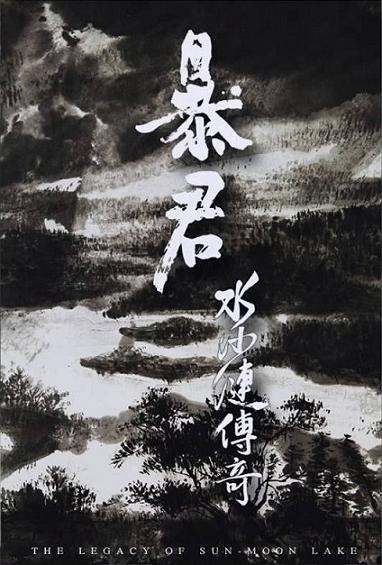 暴君
水沙連傳奇
THE LEGACY OF SUN-MOON LAKE